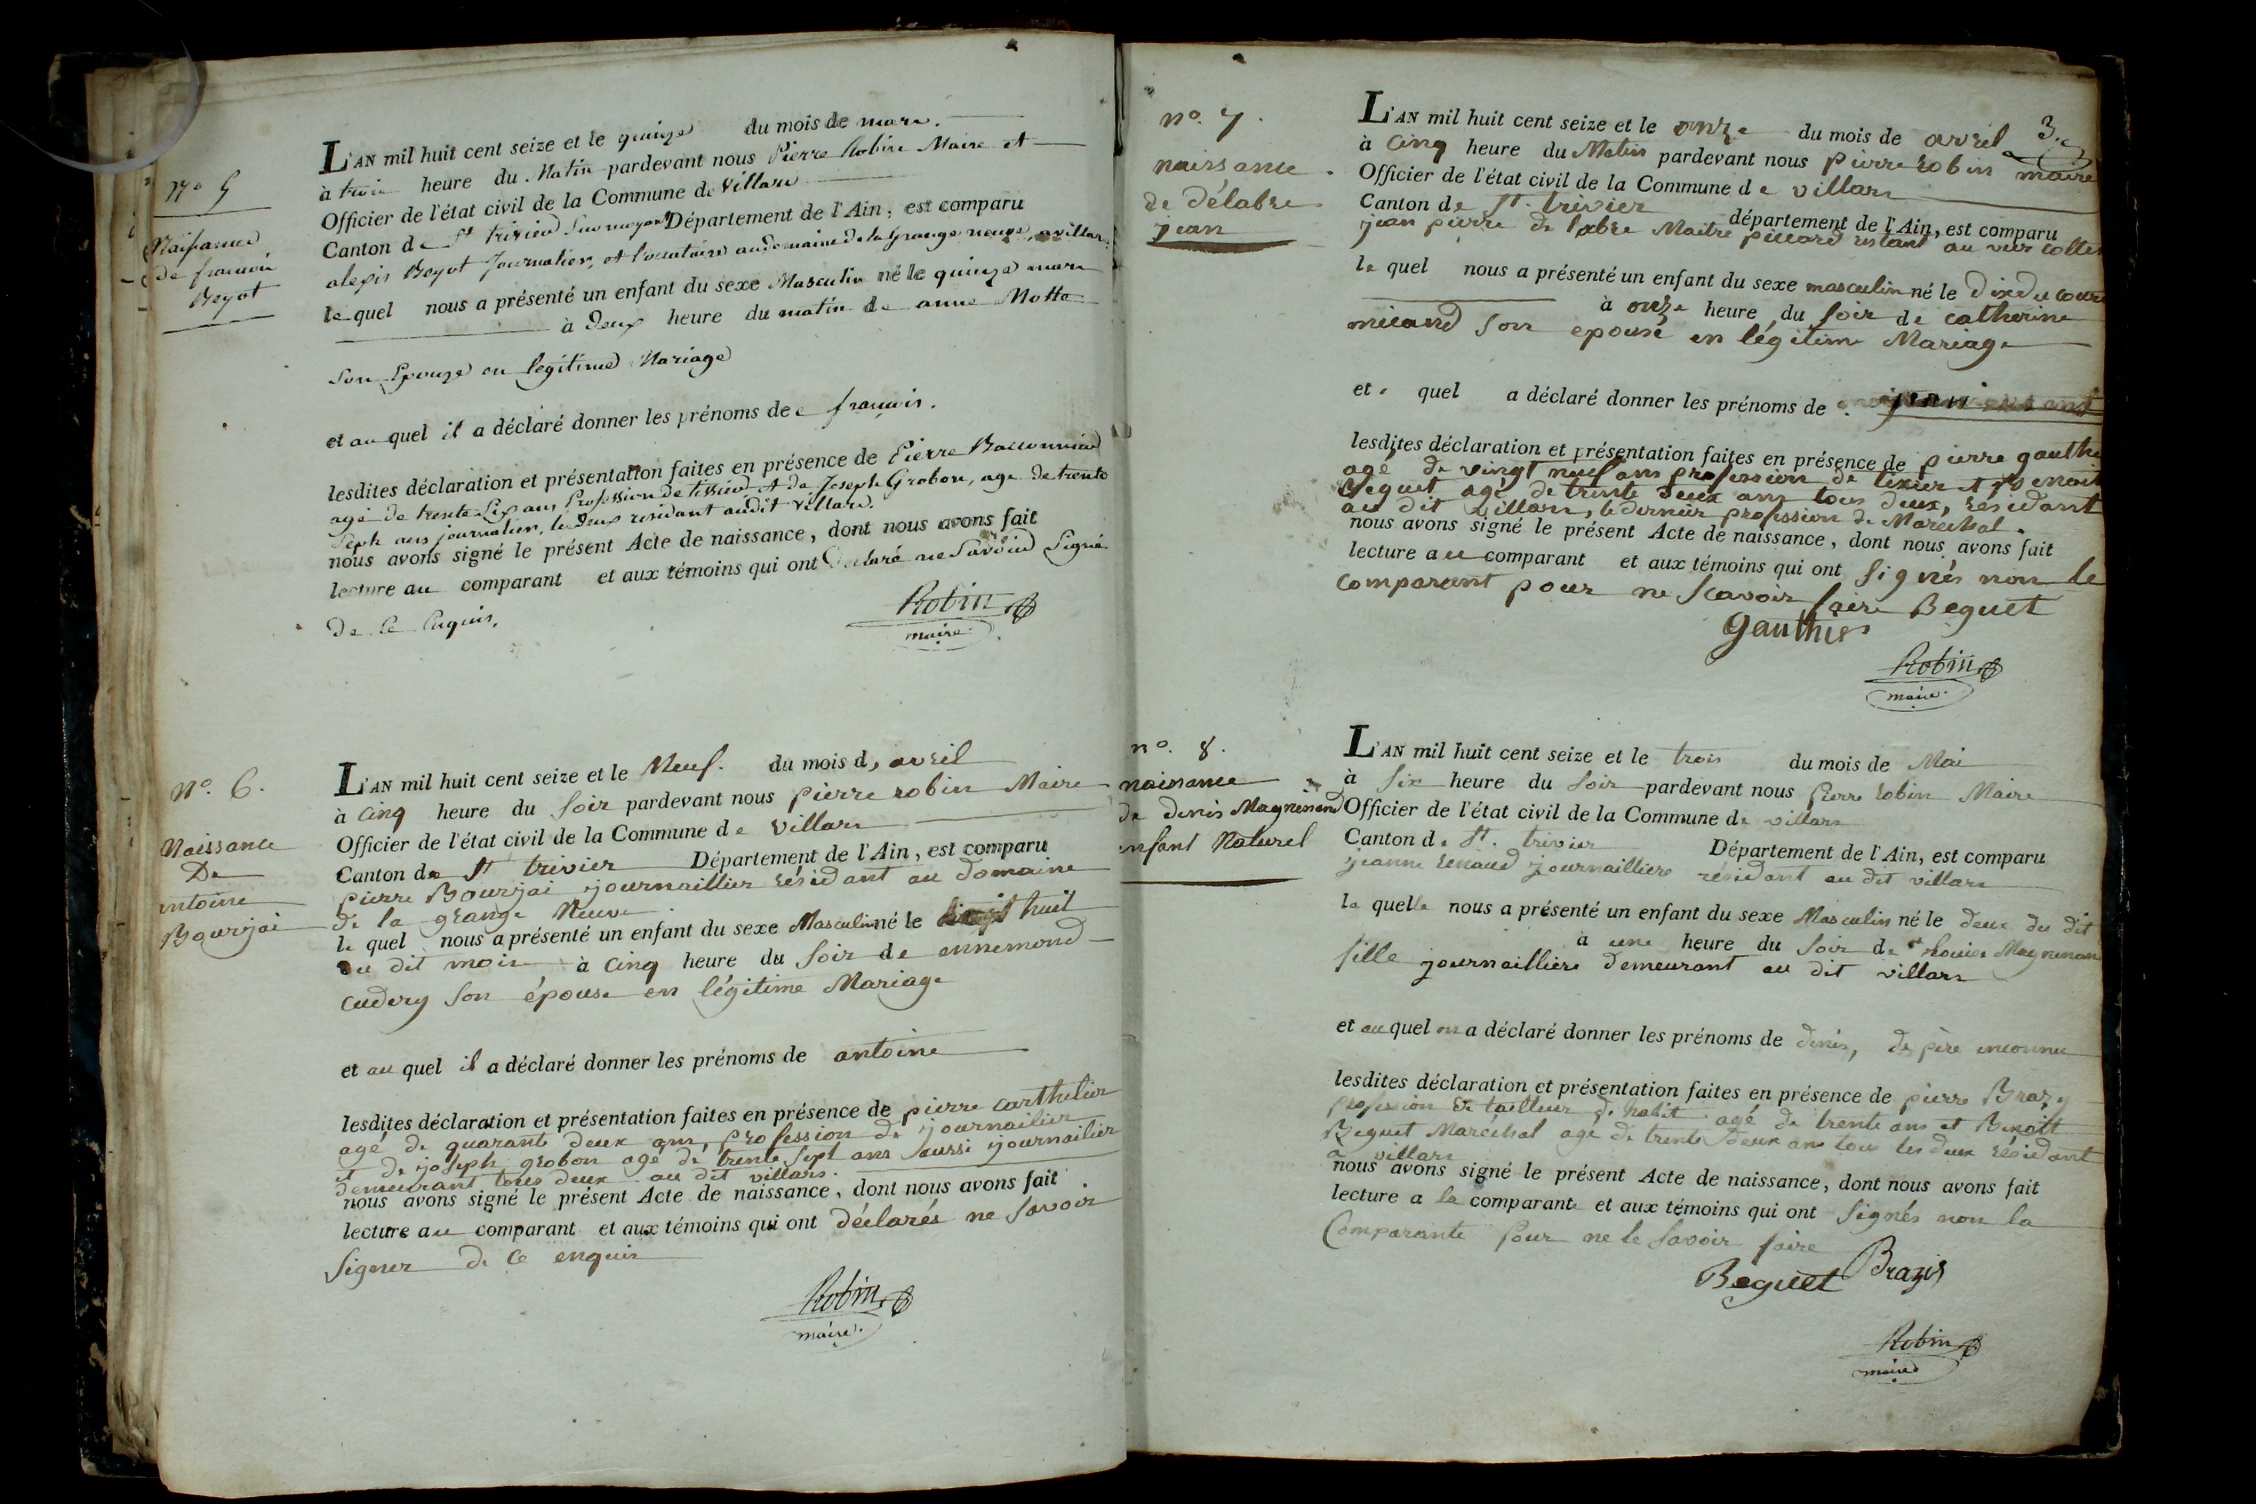 No 5
Naissance
de francois
Beyot
L'AN mil huit cent seize et le quinze du mois de mars.
à trois heure du Matin pardevant nous Pierre Robin Maire et
Officier de l'état civil de la Commune de Villars
Canton de St trivier Sur moyans Département de l'Ain, est comparu
alexis Beyot Journalier, et Locataire au domaine de la Grange neuve, a villars
le quel nous a présenté un enfant du sexe Masculin né le quinze mars
à Deux heure du matin de anne Motte
Son Epouze en légitime Mariage
et au quel il a déclaré donner les prénoms de francois.
lesdites déclaration et présentation faites en présence de Pierre
agé de trente Six ans Profession de tissier et de Joseph Grobon, age de trente
Sept ans journalier, les deux residant audit Villars.
nous avons signé le présent Acte de naissance, dont nous avons fait
lecture au comparant et aux témoins qui ont Déclaré ne Savoir Signé
De Ce Enquis.
Robin
maire
No. 6.
Naissance
De
antoine
Bourjai
L'AN mil huit cent seize et le Neuf. du mois d, avril
à cinq heure du soir pardevant nous pierre robin Maire
Officier de l'état civil de la Commune de Villars
Canton de St trivier Département de l'Ain, est comparu
pierre Bourjai journaillier résidant au domaine
de la grange Neuve
le quel nous a présenté un enfant du sexe Masculin né le huit
du dit mois à cinq heure du soir de ennemond
cudery son épouse en légitime Mariage
et au quel il a déclaré donner les prénoms de antoine
lesdites déclaration et présentation faites en présence de pierre carthelier
agé de quarante deux ans, profession de journailier
et de joseph grobon agé de trente sept ans aussi journailier
demeurant tous deux au dit villars.
nous avons signé le présent Acte de naissance, dont nous avons fait
lecture au comparant et aux témoins qui ont déclarés ne savoir
signer de ce enquis
Robin
maire.
3.
no. 7.
naissance
de délabre
jean
L'AN mil huit cent seize et le onze du mois de avril
à cinq heure du Matin pardevant nous pierre robin maire
Officier de l'état civil de la Commune de villars
Canton de St. trivier département de l'Ain, est comparu
jean pierre de labre Maitre restant au
le quel nous a présenté un enfant du sexe masculin né le dix du cour
à onze heure du soir de catherine
micand son epouse en légitime Mariage
et quel a déclaré donner les prénoms de jean
lesdites déclaration et présentation faites en présence de pierre gauthi
agé de vingt neuf ans profession de texier et Benoit
Beguet agé de trente deux ans tous deux, résidant
au dit Villars, le dernier profession de Maréchal.
nous avons signé le présent Acte de naissance, dont nous avons fait
lecture au comparant et aux témoins qui ont signés non le
comparant pour ne scavoir faire Beguet
gauthier
Robin
maire.
no. 8.
naissance
de denis Magnenand
enfant Naturel
L'AN mil huit cent seize et le trois du mois de Mai
à six heure du soir pardevant nous pierre robin Maire
Officier de l'état civil de la Commune de villars
Canton de St. trivier Département de l'Ain, est comparu
jeanne renaud journailliere résidant au dit villars
la quelle nous a présenté un enfant du sexe Masculin né le deux du dit
à une heure du soir de Magnenan
fille journailliere demeurant au dit villars
et au quel on a déclaré donner les prénoms de denis, de père inconnu
lesdites déclaration et présentation faites en présence de pierre Brazy
profession de tailleur d'habit agé de trente ans et Benoitt
Beguet Maréchal agé de trente deux ans tous les deux résidant
a villars
nous avons signé le présent Acte de naissance, dont nous avons fait
lecture a la comparante et aux témoins qui ont signés non la
Comparante Pour ne le savoir faire
Beguet Brazis
Robin
maire